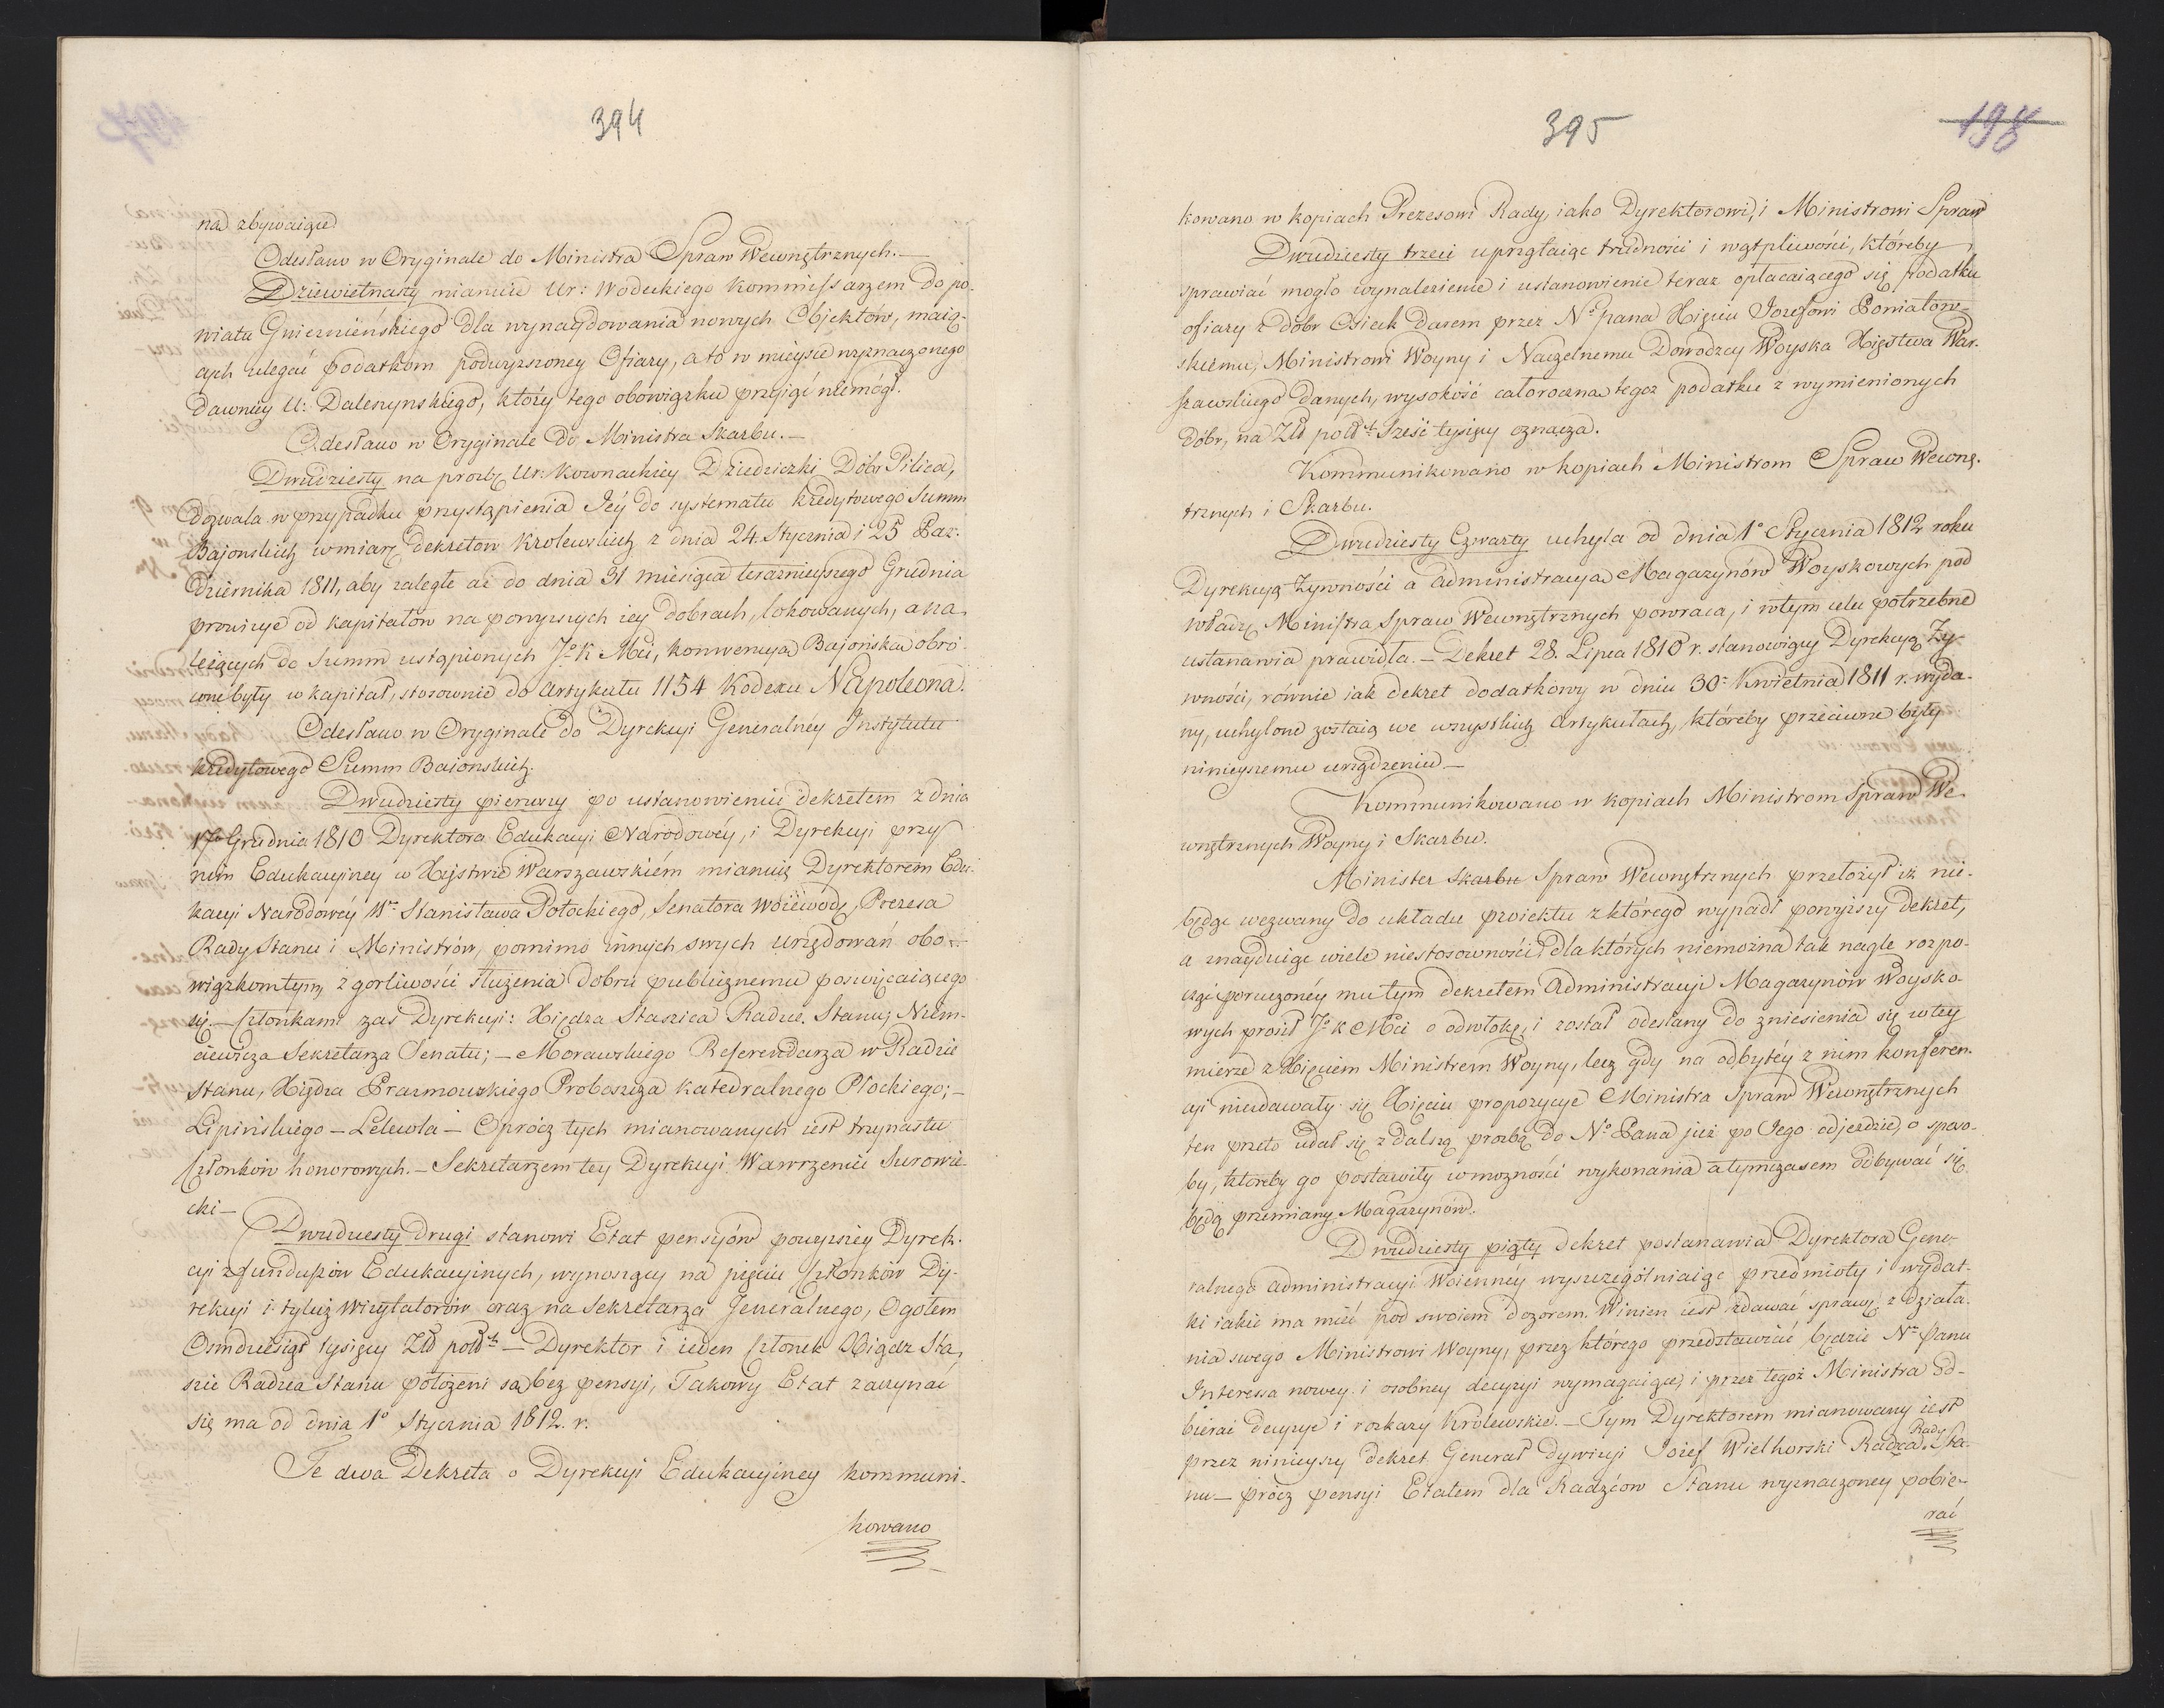 394
nad zbywaiące
Odesłano w Oryginale do Ministra Spraw Wewnętrznych.—
Dziewietnasty mianuie Ur: Wodeckiego Kommissarzem do po-
wiatu Gnieznieńskiego dla wynaydowania nowych Objektów, maią-
cych ulegać podatkom podwyższoney Ofiary, a to w mieysce wyznaczonego
dawniey U: Daleszynskiego, który tego obowiązku przyiąć niemógł.
Odesłano w Oryginale do Ministra Skarbu.—
Dwudziesty na prozbę Ur: Kownackiey Dziedziczki Dóbr Pilica,
dozwala w przypadku przystąpienia Jéy do systematu kredytowego Summ
Bajonskich w miarę dekretow Krolewskich z dnia 24. Stycznia i 25 Paz-
dziernika 1811, aby zaległe aż do dnia 31 miesiąca teraznieyszego Grudnia
prowizye od kapitałów na powyzszych iey dobrach, lokowanych, a na-
leżących do Summ ustąpionych J.° K Mci, konwencya Bajońska obró-
cone były w kapitał, stosownie do artykułu 1154 Kodexu Napoleona.
Odesłano w Oryginale do Dyrekcyi Generalney Instytutu
kredytowego Summ Baionskich.
Dwudziesty pierwszy po ustanowieniu dekretem z dnia
17° Grudnia 1810 Dyrektora Edukacyi Narodowéy, i Dyrekcyi przy
nim Edukacyiney w Xięstwie Warszawskiém mianuię Dyrektorem Edu-
kacyi Narodowéy W° Stanisława Potockiego, Senatora Woiewodę, Prezesa
Rady Stanu i Ministrów, pomimo innych swych urzędowań obo-
wiązkomtym, z gorliwości służenia dobru publicznemu poswięcaiącego
się.— Członkami zas Dyrekcyi: Xiędza Staszica Radzcę Stanu; Niem-
ciewicza Sekretarza Senatu;— Morawskiego Referendarza w Radzie
Stanu, Xiędza Prazmowskiego Proboszcza Katedralnego Płockiego;—
Lipińskiego — Lelewla — Oprócz tych mianowanych iest trzynastu
Członków honorowych.— Sekretarzem tey Dyrekcyi Wawrzeniec Surowie-
cki —
Dwudziesty drugi stanowi Etat pensyów powyzszey Dyrek-
cyi z funduszów Edukacyinych, wynoszący na pięciu Członków Dy-
rekcyi i tyluż Wizytatorów oraz na Sekretarza Jeneralnego, Ogołem
Osmdziesiąt tysięcy Złł pol.— Dyrektor i ieden Członek Xiądz Sta-
szic Radzca Stanu położeni są bez pensyi, Takowy Etat zaczynać
się ma od dnia 1° Stycznia 1812. r.
Te dwa Dekreta o Dyrekcyi Edukacyiney kommuni-
kowano
395
198
kowano w kopiach Prezesowi Rady, iako Dyrektorowi, i Ministrowi Spraw
Dwudziesty trzeci uprzątaiąc trudności i wątpliwości, któreby
sprawiać mogło wynalezienie i ustanowienie teraz opłacaiącego się podatku
ofiary z dóbr Osiek darem przez N° Pana Xięciu Jozefowi Poniatow-
skiemu, Ministrowi Woyny i Naczelnemu Dowodzcy Woyska Xięstwa War-
szawskiego danych, wysokość całoroczna tegoz podatku z wymienionych
dóbr, na Złł pol Sześć tysięcy oznacza.
Kommunikowano w kopiach Ministrom Spraw Wewnę-
trznych i Skarbu.
Dwudziesty Czwarty uchyla od dnia 1° Stycznia 1812 roku
Dyrekcyą Zywności a administracya Magazynów Woyskowych pod
władzę Ministra Spraw Wewnętrznych powraca, i w tym celu potrzebne
ustanawia prawidła.— Dekret 28. Lipca 1810 r. stanowiący Dyrekcyą Ży-
wności, równie iak dekret dodatkowy w dniu 30° Kwietnia 1811 r. wyda-
ny, uchylone zostaią we wszystkich artykułach, któreby przeciwne były
ninieyszemu urządzeniu.—
Kommunikowano w kopiach Ministrom Spraw We-
wnętrznych Woyny i Skarbu.
Minister Skarbu Spraw Wewnętrznych przełożył iż nie-
będąc wezwany do układu proiektu z którego wypadł powyższy dekret,
a znayduiąc wiele niestosowności dla których niemożna tak nagle rozpo-
cząć poruczonéy mu tym dekretem Administracyi Magazynów Woysko-
wych prosił J° K Mci o odwłokę, i został odesłany do zniesienia się w tey
mierze z Xięciem Ministrem Woyny, lecz gdy na odbytéy z nim konferen-
cyi niezdawały się Xięciu propozycye Ministra Spraw Wewnętrznych
ten przeto udał się z dalszą prozbą do N° Pana już po Jego odjezdzie, o sposo-
by, któreby go postawiły w możności wykonania a tymczasem odbywać się
będą przemiany Magazynów.
Dwudziesty piąty dekret postanawia Dyrektora Gene-
ralnego administracyi Woiennéy wyszczególniaiąc przedmioty i wydat-
ki iakie ma mieć pod swoiem dozorem. Winien iest zdawać sprawę z działa-
nia swego Ministrowi Woyny, przez którego przedstawiać będzie N° Panu
Interessa nowey i osobney decyzyi wymagaiące, i przez tegoż Ministra od-
bierać decyzye i rozkazy Królewskie.— Tym Dyrektorem mianowany iest
przez ninieyszy dekret Generał dywizyi Jozef Wielhorski Radzca Rady Sta-
nu — prócz pensyi Etatem dla Radzców Stanu wyznaczoney pobie-
rać